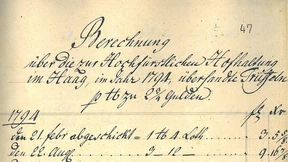 47
Berechnung
über die zur Hochfürstlichen Hofhaltung
im Haag, im Jahr 1794, übersandte Trüffeln
p ℔ zu 2½ Gulden.
1794 fl xr
den 21 febr abgeschickt = 1 ℔ 4 Loth
den 22 Aug. — 3 — 10 —